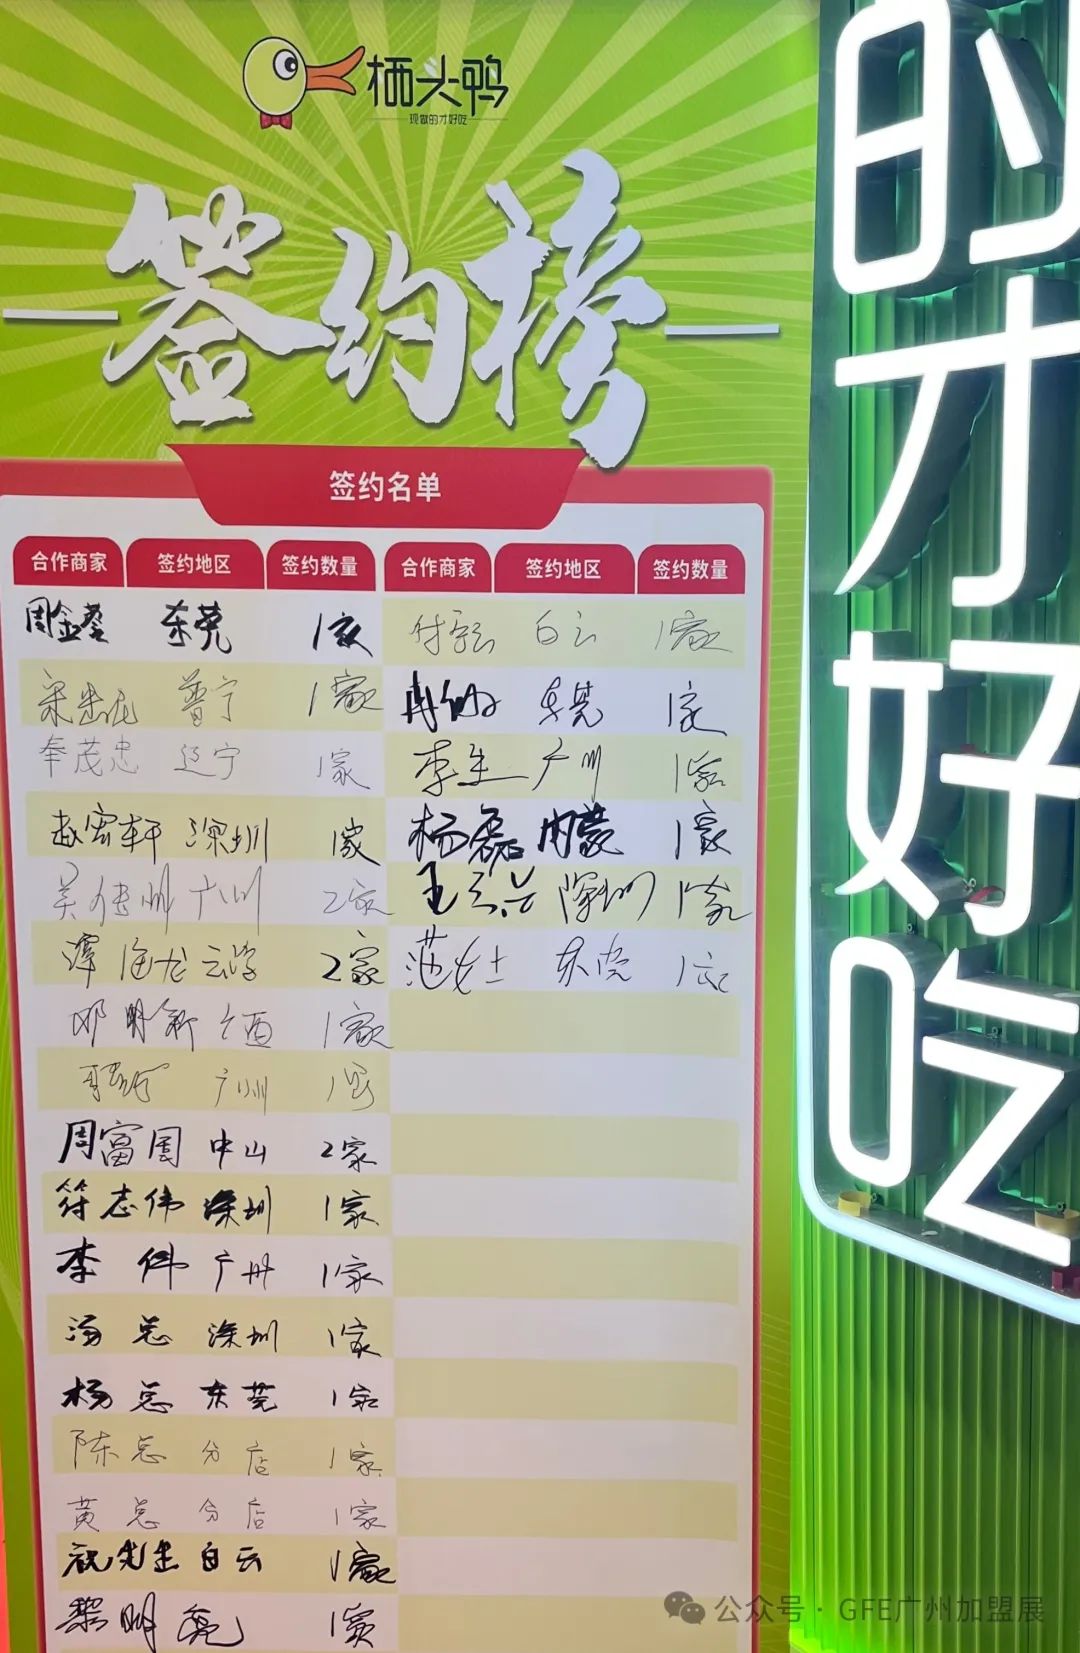 栖头鸭
现做的才好吃
签约榜
签约名单
合作商家 签约地区 签约数量
周金銮 东莞 1家
普宁 1家
奉茂忠 辽宁 1家
赵宏轩 深圳 1家
吴伟州 广州 2家
谭海龙 云浮 2家
邓明新 1家
广州 1家
周富国 中山 2家
符志伟 深圳 1家
李伟 广州 1家
汤总 深圳 1家
杨总 东莞 1家
陈总 分店 1家
黄总 分店 1家
祝先生 白云 1家
黎明亮 1家
合作商家 签约地区 签约数量
白云 1家
东莞 1家
李生 广州 1家
杨磊 内蒙 1家
深圳 1家
范女士 东莞 1家
的才好吃
公众号·GFE广州加盟展